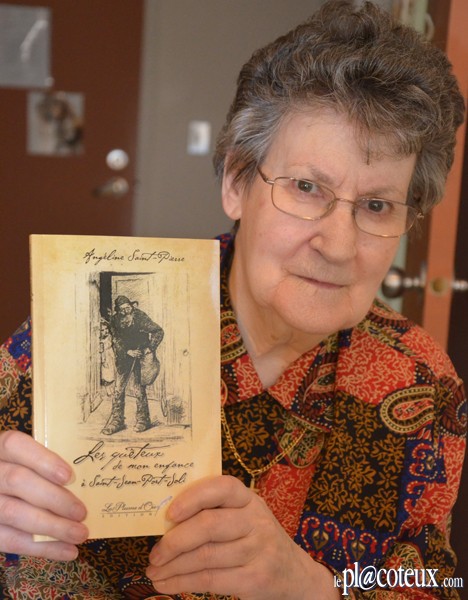 Angéline Saint-Pierre
Les quêteux
de mon enfance
à Saint-Jean-Port-Joli
Les Plumes d'Or
ÉDITIONS
le pl@coteux
.com